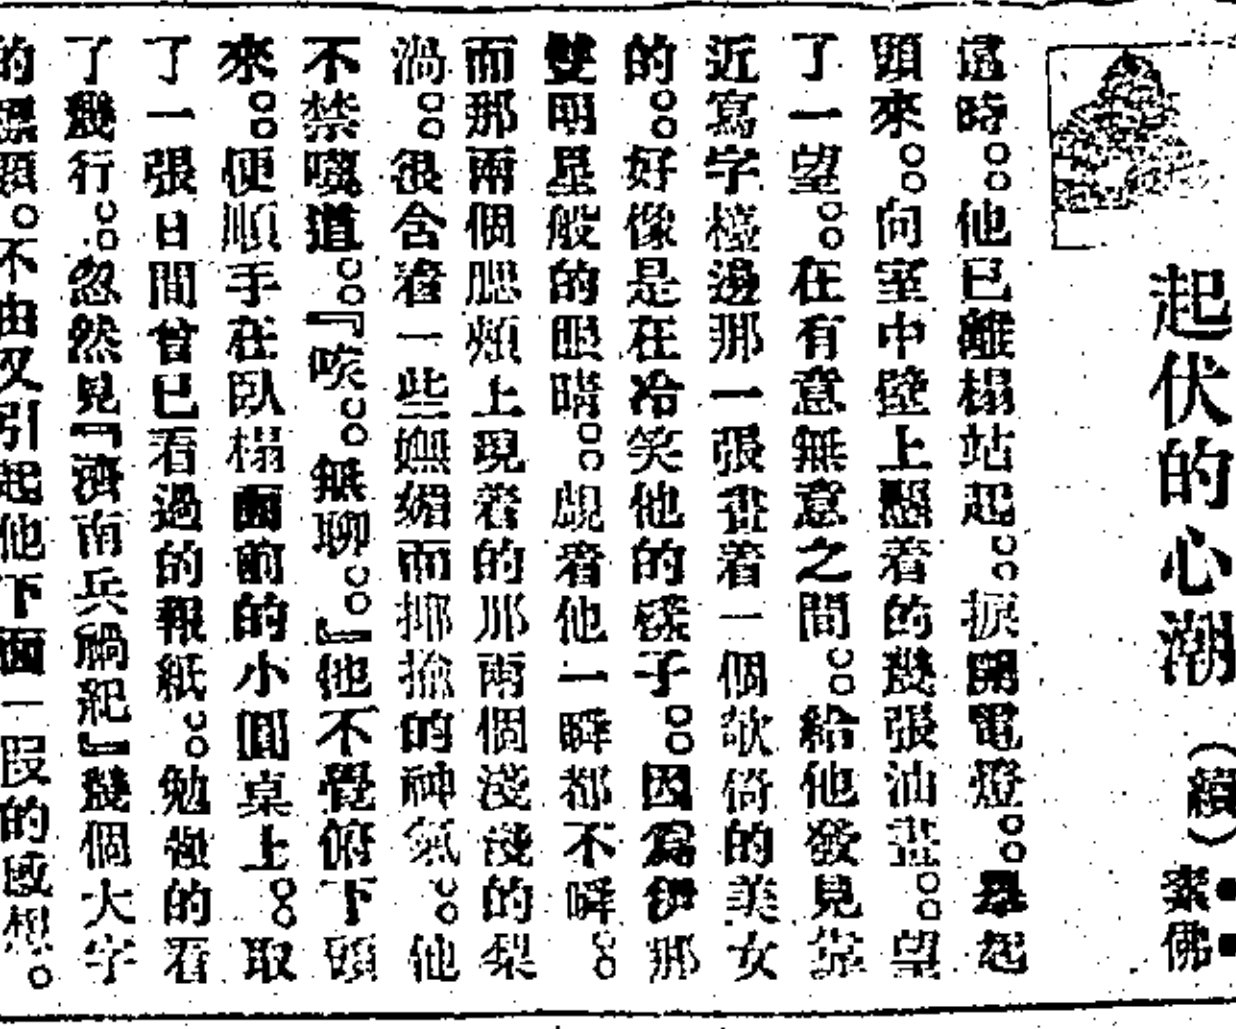 起伏的心潮 （續） 素佛
這時。。他已離榻站起。。捩開電燈。。舉起
頭來。。向室中壁上懸着的幾張油畫。。望
了一望。。在有意無意之間。。給他發見靠
近寫字檯邊那一張畫着一個欹倚的美女
的。。好像是在冷笑他的樣子。。因爲伊那
雙明星般的眼睛。。覷着他一瞬都不瞬。。
而那兩個腮頰上現着的那兩個淺淺的梨
渦。。很含着一些嫵媚而揶揄的神氣。。他
不禁嘆道。。『唉。。無聊。。』他不覺俯下頭
來。。便順手在臥榻面前的小圓桌上。。取
了一張日間曾已看過的報紙。。勉強的看
了幾行。。忽然見『濟南兵禍紀』幾個大字
的標題。不由又引起他下面一段的感想。